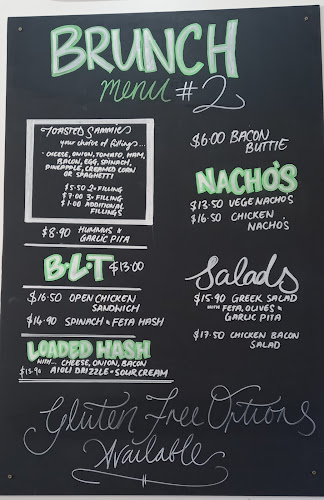 BRUNCH
menu #2
TOASTED SAMMIES
your choice of fillings...
CHEESE, ONION, TOMATO, HAM,
BACON, EGG, SPINACH,
PINEAPPLE, CREAMED CORN
OR SPAGHETTI
$5.50 2× FILLING
$7.00 3× FILLING
$1.00 ADDITIONAL
FILLINGS
$8.90 HUMMUS &
GARLIC PITA
B·L·T $13.00
$16.50 OPEN CHICKEN
SANDWICH
$14.90 SPINACH & FETA HASH
LOADED HASH
WITH... CHEESE, ONION, BACON
AIOLI DRIZZLE & SOUR CREAM
$6.00 BACON
BUTTIE
NACHO'S
$13.50 VEGE NACHO'S
$16.50 CHICKEN
NACHO'S
Salads
$15.90 GREEK SALAD
WITH FETA, OLIVES &
GARLIC PITA
$17.50 CHICKEN BACON
SALAD
Gluten Free Options
Available